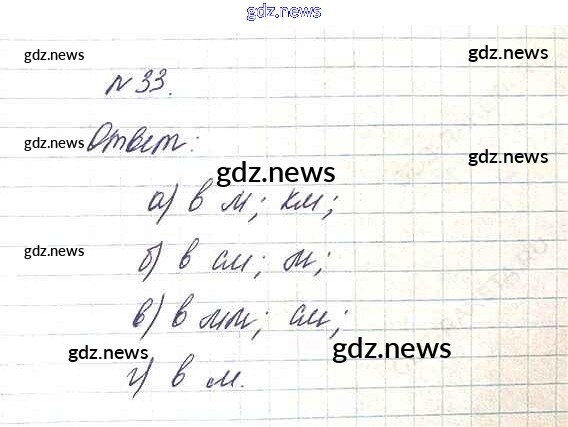 gdz.news
gdz.news
gdz.news
N 33.
gdz.news
Ответ:
gdz.news
gdz.news
а) в м; км;
gdz.news
б) в см; м;
в) в мм; см;
gdz.news
gdz.news
г) в м.